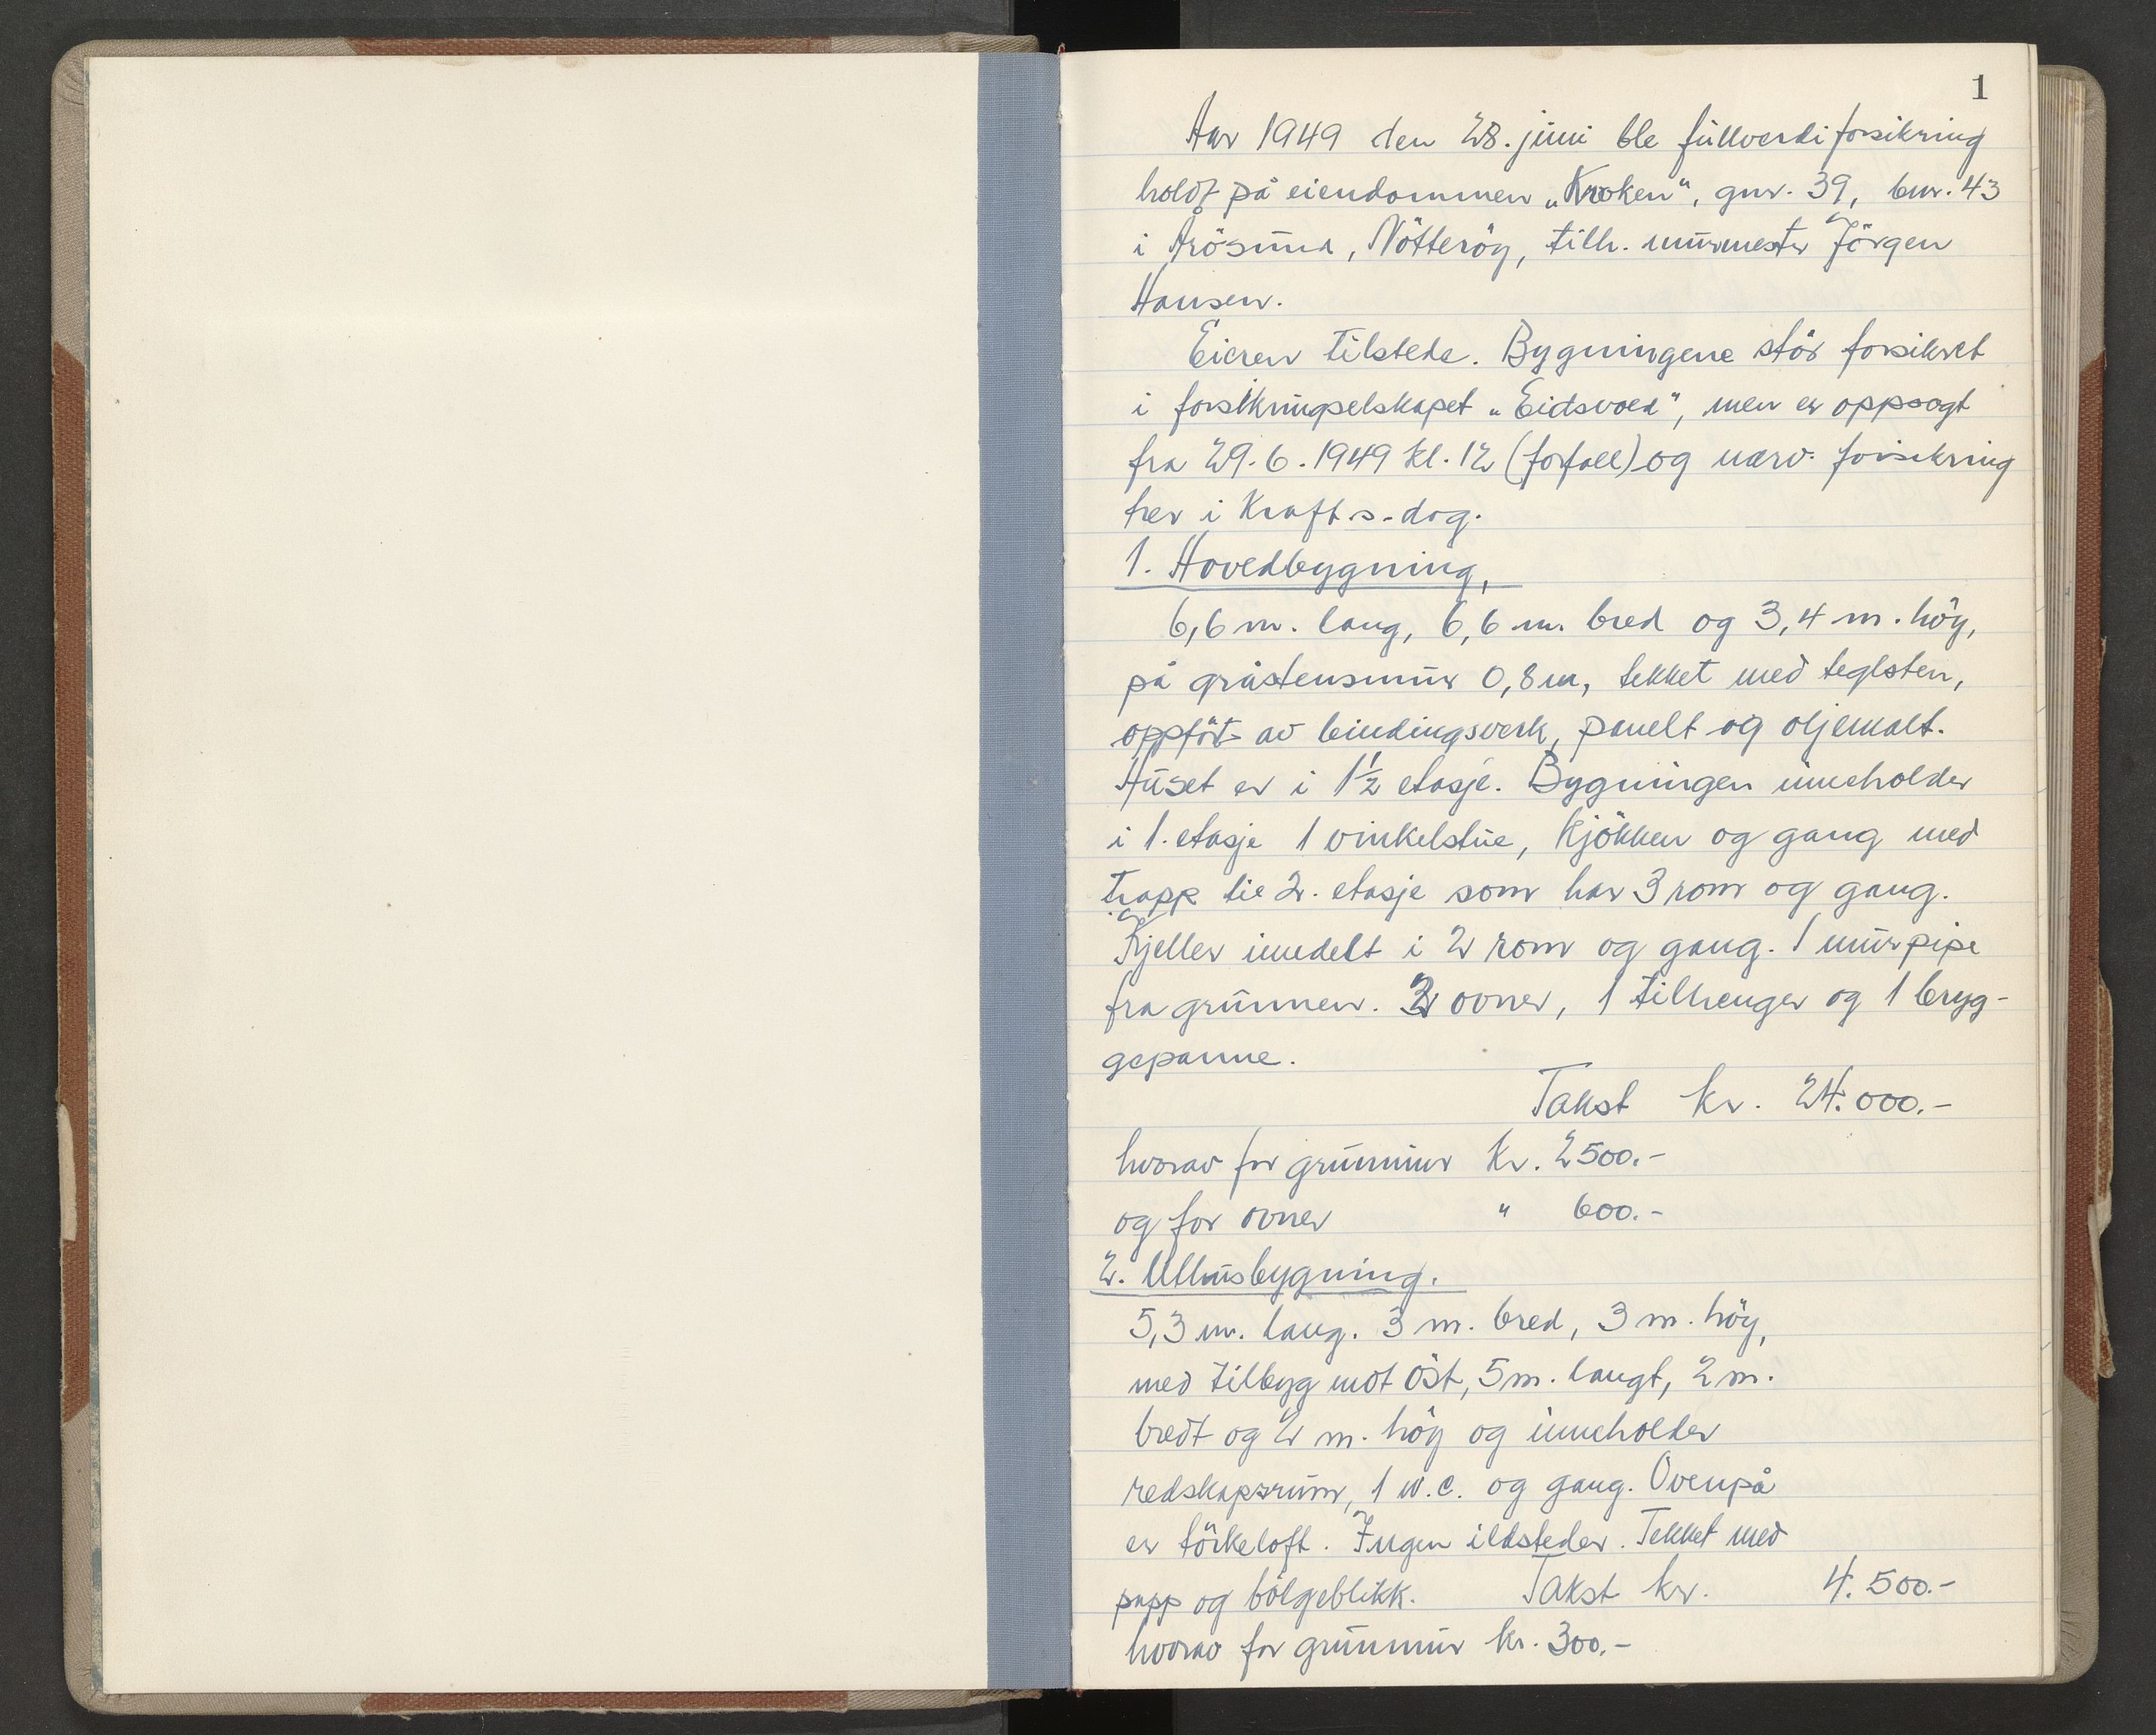 1
Aar 1949 den 28. juni ble fullverdiforsikring
holdt på eiendommen „Kroken“, gnr. 39, bnr. 43
i Årösund, Nötteröy, tilh. murmester Jörgen
Hansen.
Eieren tilstede. Bygningene står forsikret
i forsikringselskapet „Eidsvoll“, men er oppsagt
fra 29.6.1949 kl. 12 (forfall) og nærv. forsikring
trer i Kraft s. dag.
1. Hovedbygning,
6,6 m. lang, 6,6 m. bred og 3,4 m. höy,
på gråstensmur 0,8 m, tekket med teglsten,
oppfört av bindingsverk, panelt og oljemalt.
Huset er i 1½ etasje. Bygningen inneholder
i 1. etasje 1 vinkelstue, kjökken og gang med
trapp til 2. etasje som har 3 rom og gang.
Kjeller inndelt i 2 rom og gang. 1 murpipe
fra grunnen. 3 ovner, 1 tilhenger og 1 bryg-
gepanne.
Takst kr. 24.000.-
hvorav for grunnmur kr. 2500.-
og for ovner " 600.-
2. Uthusbygning.
5,3 m. lang. 3 m. bred, 3 m. höy,
med tilbyg mot öst, 5 m. langt, 2 m.
bredt og 2 m. höy og inneholder
redskapsrum, 1 w.c. og gang. Ovenpå
er törkeloft. Ingen ildsteder. Tekket med
papp og bölgeblikk. Takst kr. 4.500.-
hvorav for grunnmur kr. 300.-